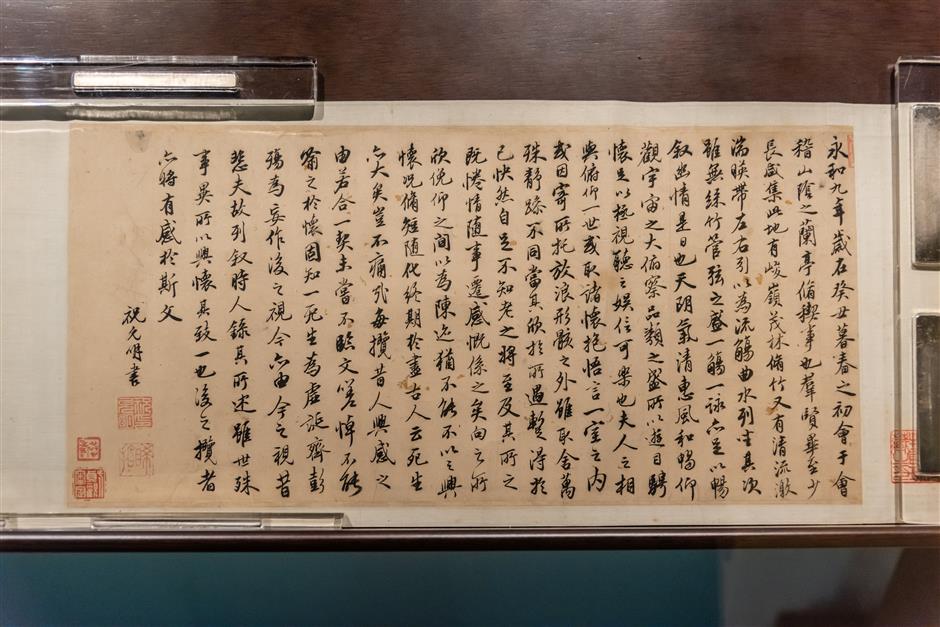 永和九年歲在癸丑暮春之初會于會
稽山陰之蘭亭脩禊事也羣賢畢至少
長咸集此地有峻嶺茂林脩竹又有清流激
湍暎帶左右引以為流觴曲水列坐其次
雖無絲竹管弦之盛一觴一詠亦足以暢
叙幽情是日也天朗氣清惠風和暢仰
觀宇宙之大俯察品類之盛所以遊目騁
懷足以極視聽之娛信可樂也夫人之相
與俯仰一世或取諸懷抱悟言一室之內
或因寄所托放浪形骸之外雖取舍萬
殊靜躁不同當其欣於所遇暫得於
己快然自足不知老之將至及其所之
既惓情隨事遷感慨係之矣向之所
欣俛仰之間以為陳迹猶不能不以之興
懷況脩短隨化終期於盡古人云死生
亦大矣豈不痛哉每攬昔人興感之
由若合一契未嘗不臨文嗟悼不能
喻之於懷固知一死生為虛誕齊彭
殤為妄作後之視今亦由今之視昔
悲夫故列叙時人錄其所述雖世殊
事異所以興懷其致一也後之攬者
亦將有感於斯文
祝允明書